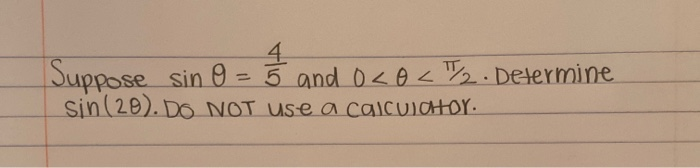 Suppose sin θ = 4/5 and 0 < θ < π/2. Determine
sin(2θ). DO NOT use a calculator.